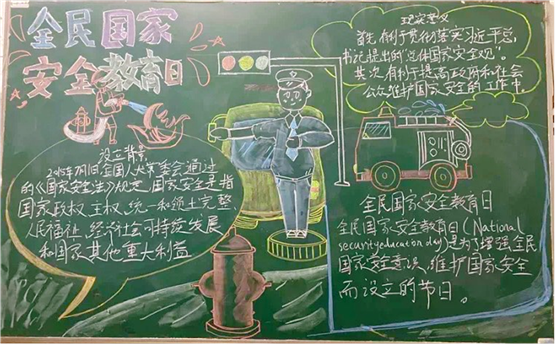 全民国家
安全教育日
设立背景
2015年7月1日全国人大常委会通过
的《国家安全法》规定,国家安全是指
国家政权、主权、统一和领土完整、
人民福祉、经济社会可持续发展
和国家其他重大利益
现实意义
首先,有利于贯彻落实习近平总
书记提出的"总体国家安全观"。
其次,有利于提高政府和社会
公众维护国家安全的工作中。
全民国家安全教育日
全民国家安全教育日(National
security education day)是为了增强全民
国家安全意识,维护国家安全
而设立的节日。